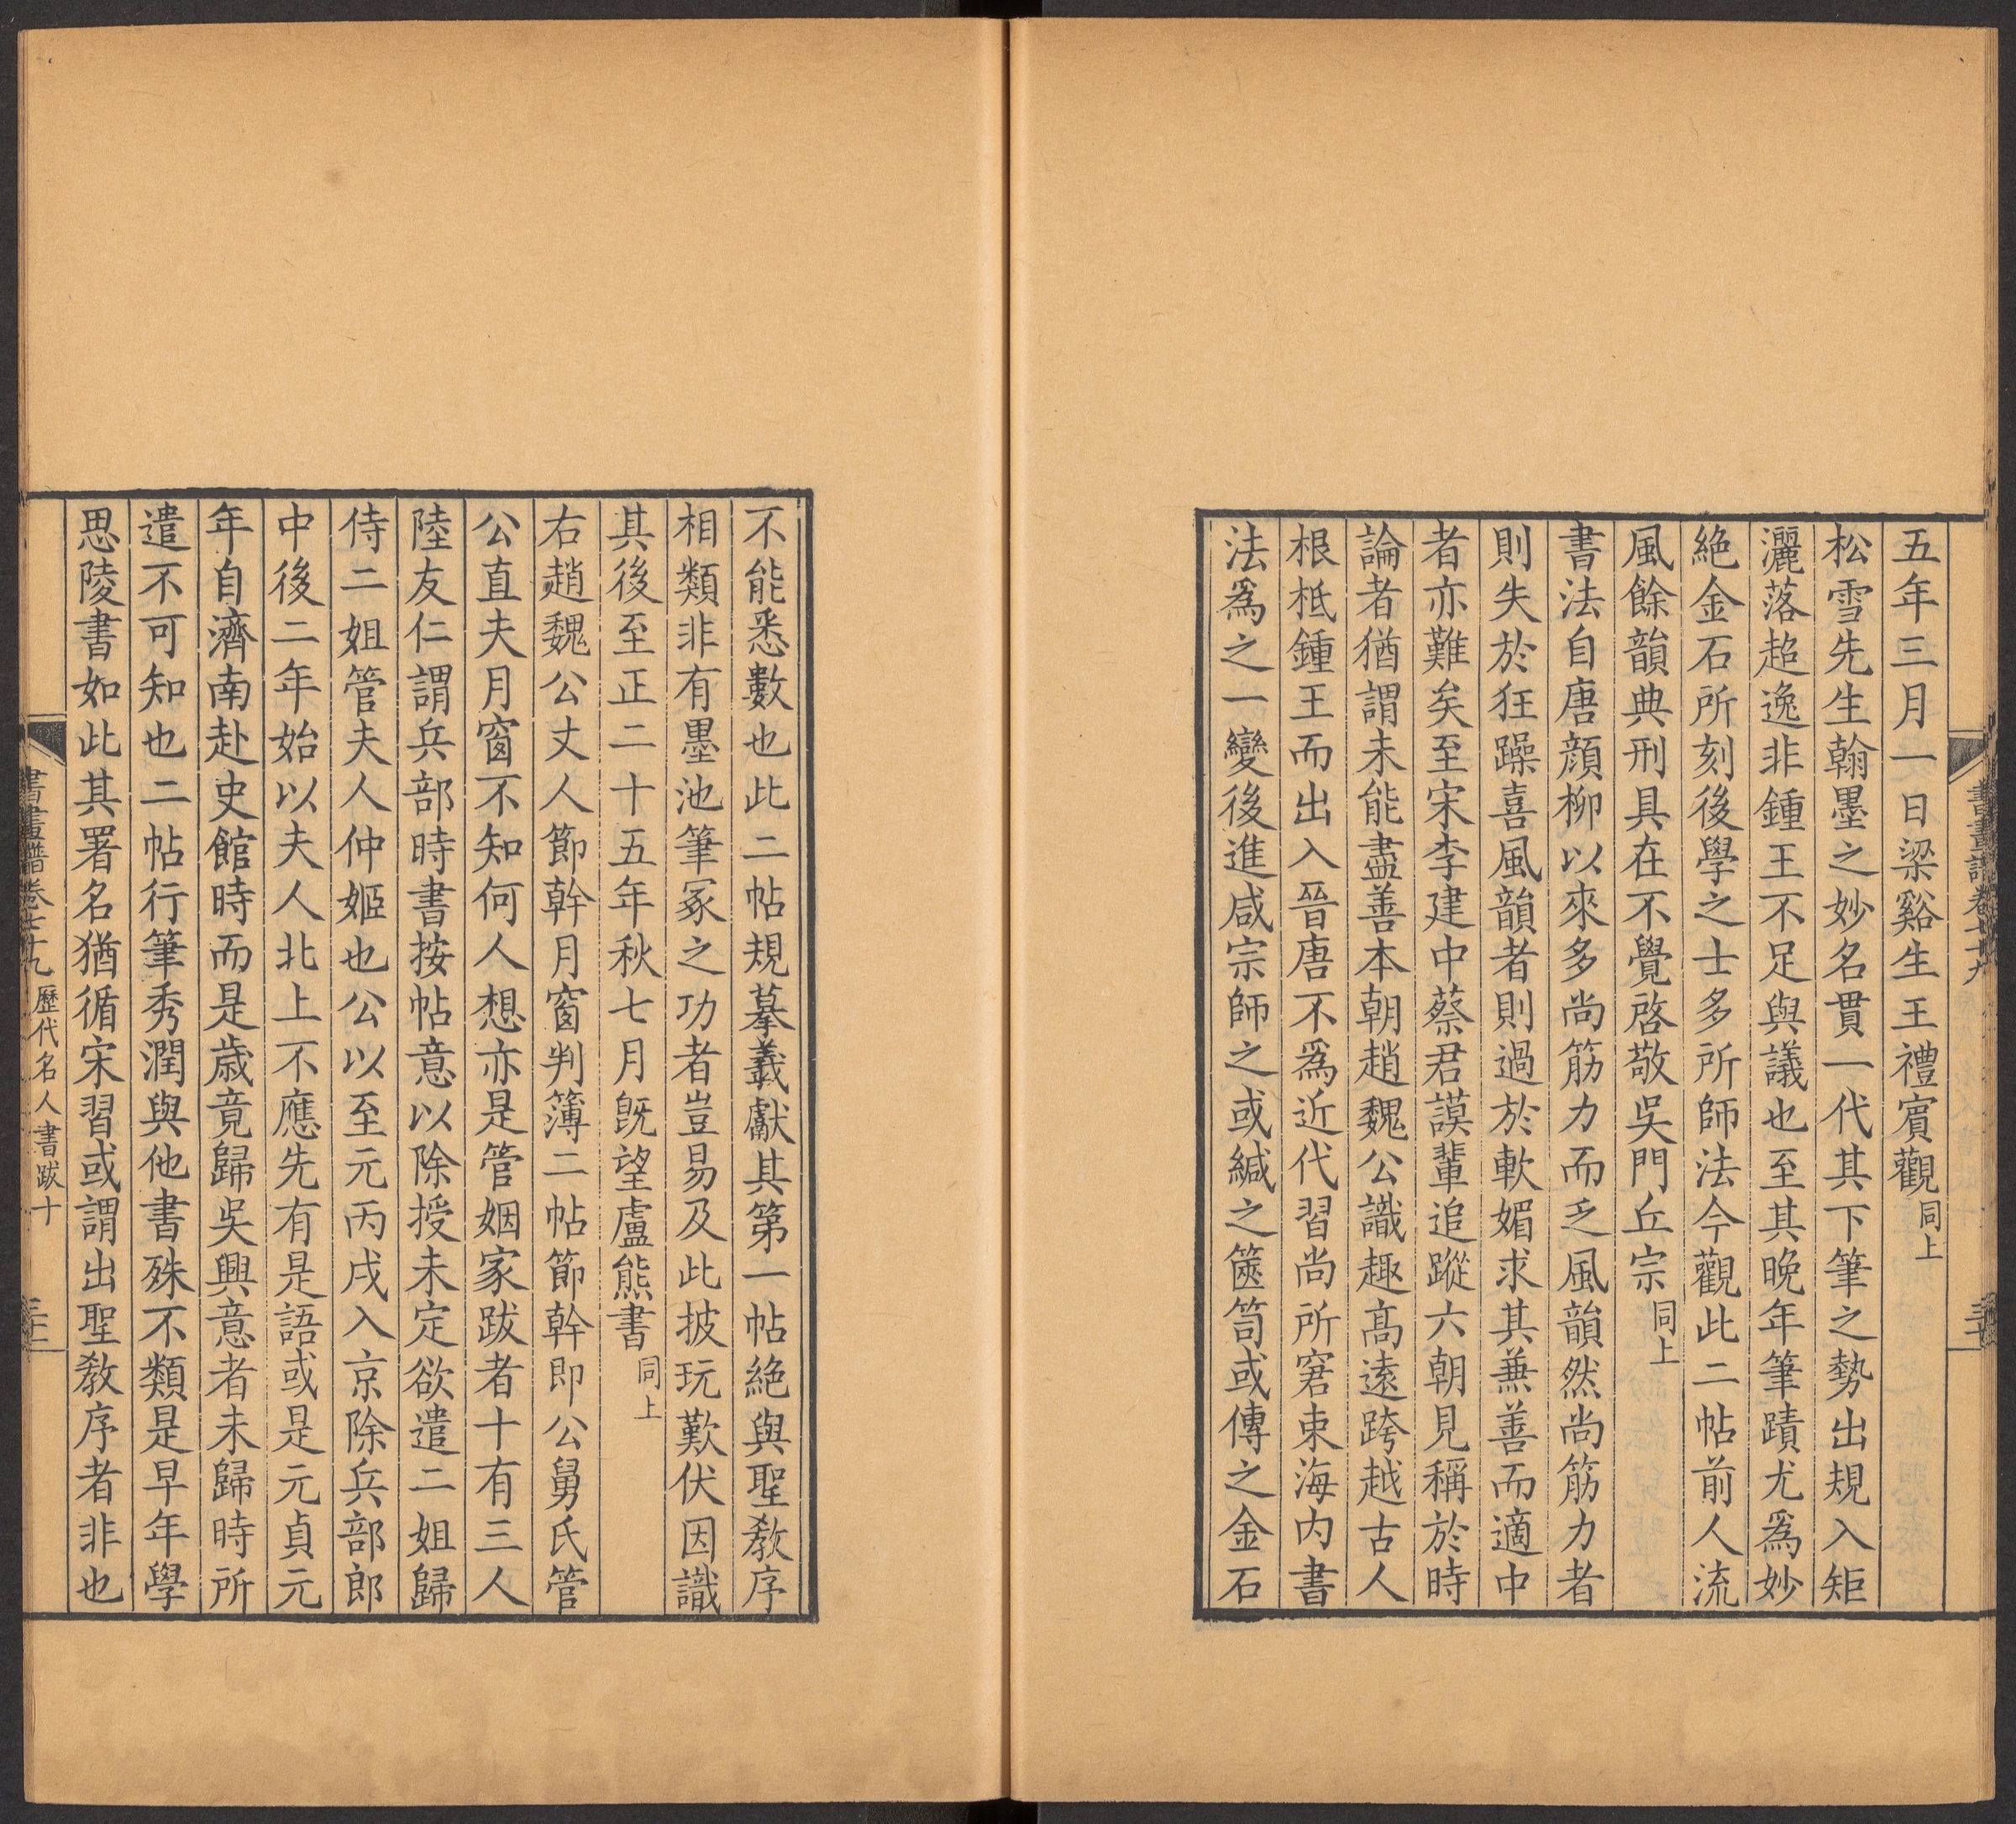 書畫譜卷七十九
三十一
五年三月一日梁谿生王禮賓觀同上
松雪先生翰墨之妙名貫一代其下筆之勢出規入矩
灑落超逸非鍾王不足與議也至其晚年筆蹟尤爲妙
絶金石所刻後學之士多所師法今觀此二帖前人流
風餘韻典刑具在不覺啓敬吳門丘宗同上
書法自唐顔柳以來多尚筋力而乏風韻然尚筋力者
則失於狂躁喜風韻者則過於軟媚求其兼善而適中
者亦難矣至宋李建中蔡君謨輩追蹤六朝見稱於時
論者猶謂未能盡善本朝趙魏公識趣高遠跨越古人
根柢鍾王而出入晉唐不爲近代習尚所窘束海内書
法爲之一變後進咸宗師之或緘之篋笥或傳之金石
不能悉數也此二帖規摹羲獻其第一帖絶與聖教序
相類非有墨池筆冢之功者豈易及此披玩歎伏因識
其後至正二十五年秋七月旣望盧熊書同上
右趙魏公丈人節幹月窗判簿二帖節幹即公舅氏管
公直夫月窗不知何人想亦是管姻家跋者十有三人
陸友仁謂兵部時書按帖意以除授未定欲遣二姐歸
侍二姐管夫人仲姬也公以至元丙戌入京除兵部郎
中後二年始以夫人北上不應先有是語或是元貞元
年自濟南赴史館時而是歲竟歸吳興意者未歸時所
遣不可知也二帖行筆秀潤與他書殊不類是早年學
思陵書如此其署名猶循宋習或謂出聖教序者非也
書畫譜卷七十九 歷代名人書跋十
三十二